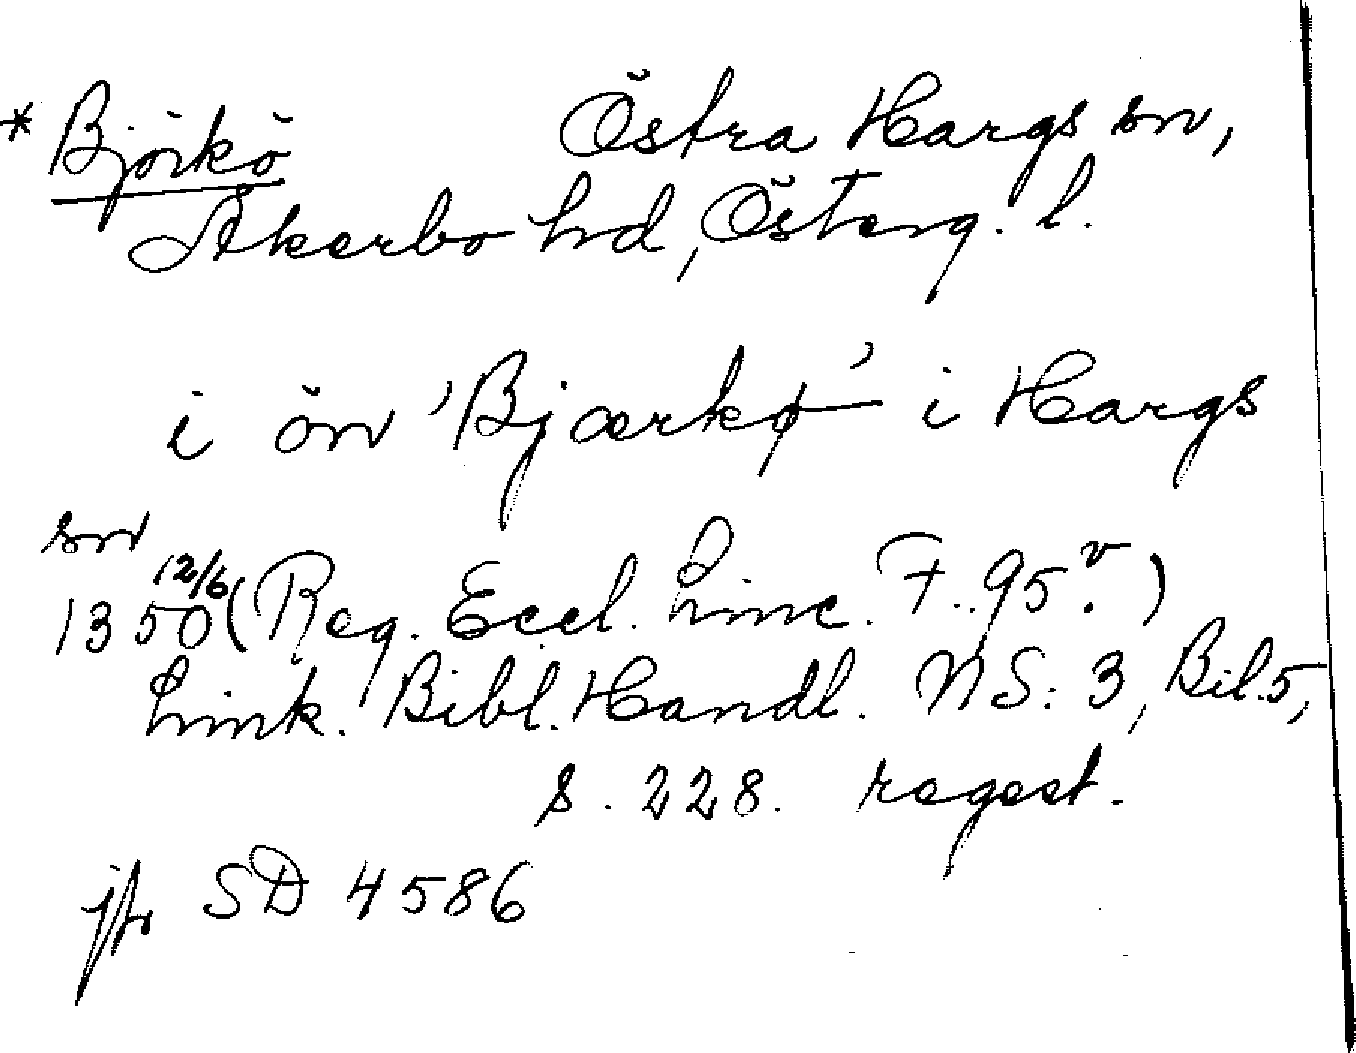 * Björkö Östra Hargs sn,
Åkerbo hd, Österg. l.
i ön 'Bjærkø' i Hargs
sn
12/6
1350 (Reg. Eccl. Linc. F. 95.v)
Link. Bibl. Handl. NS: 3, Bil. 5,
s. 228. regest.
jfr SD 4586